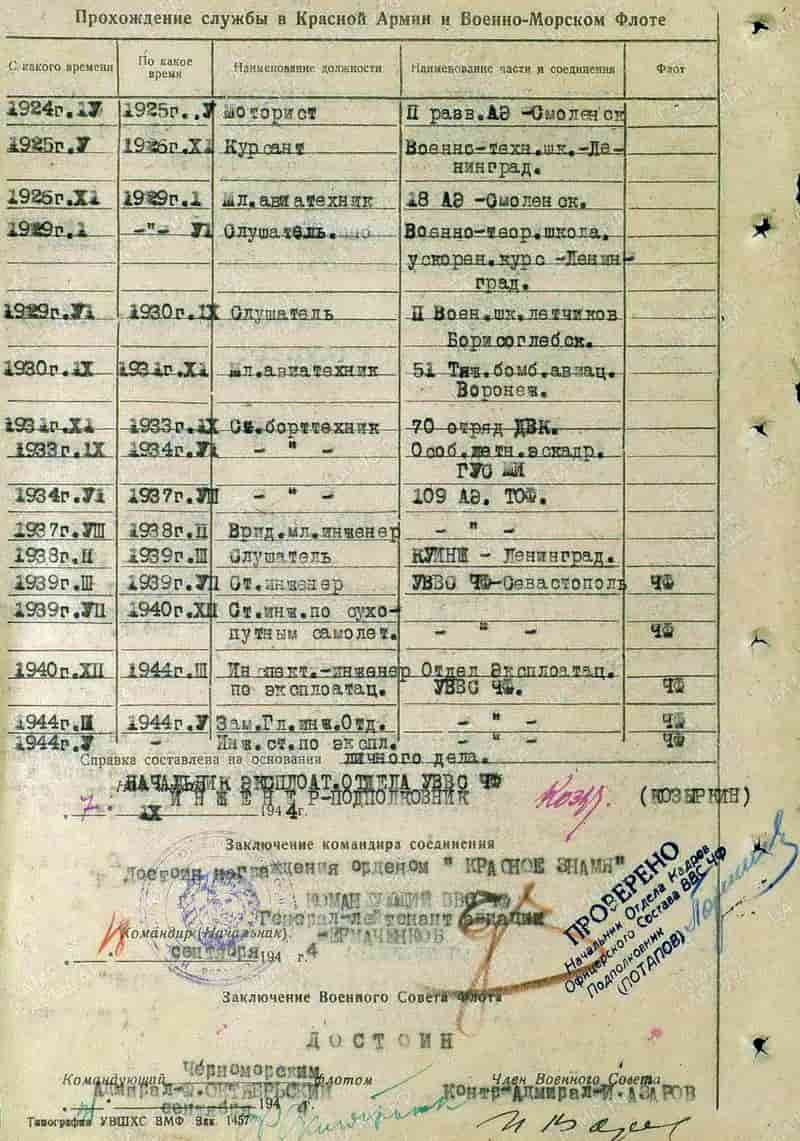 Прохождение службы в Красной Армии и Военно-Морском Флоте
С какого времени По какое время Наименование должности Наименование части и соединения Флот
1924г.IУ 1925г..У моторист II разв.АЭ -Смоленск
1925г.У 1926г.XI Курсант Военно-техн.шк.-Ле-
нинград.
1926г.XI 1929г.1 мл.авиатехник 18 АЭ -Смоленск.
1929г.1 -"- У1 Слушатель. Военно-теор.школа.
ускорен.курс -Ленин-
град.
1929г.У1 1930г.IX Слушатель II Воен.шк.летчиков
Борисоглебск.
1930г.IX 1931г.XI мл.авиатехник 51 Тяж.бомб.авиац.
Воронеж.
1931г.XI 1933г.IX Ст.борттехник 70 отряд ДВК.
1933г.IX 1934г.У1 - " - Особ.летн.эскадр.
1934г.У1 1937г.УIII - " - 109 АЭ. ТОФ.
1937г.УIII 1938г.II Врид.мл.инженер - " -
1938г.II 1939г.III Слушатель КУИНЖ - Ленинград.
1939г.III 1939г.УII Ст.инженер УВВС ЧФ-Севастополь ЧФ
1939г.УII 1940г.XII Ст.инж.по сухо-
путным самолет. - " - ЧФ
1940г.XII 1944г.III Инспект.-инженер Отдел Эксплоатац.
по эксплоатац. УВВС ЧФ. ЧФ
1944г.III 1944г.У Зам.Гл.инж.Отд. - " - ЧФ
1944г.У - Инж.ст.по экспл. - " - ЧФ
Справка составлена на основании личного дела.
НАЧАЛЬНИК ЭКСПЛОАТ.ОТДЕЛА УВВС ЧФ
ИНЖЕНЕР-ПОДПОЛКОВНИК (КОЗЫРКИН)
„7" IX 1944г.
Заключение командира соединения
Достоин награждения орденом "КРАСНОЕ ЗНАМЯ"
КОМАНДУЮЩИЙ ВВС ЧФ
Генерал-лейтенант авиации
Командир (Начальник). -ЕРМАЧЕНКОВ
сентября 194 г. 4
ПРОВЕРЕНО
Начальник Отдела Кадров
Офицерского Состава ВВС ЧФ
Подполковник
(ПОТАПОВ)
Заключение Военного Совета Флота
ДОСТОИН
Черноморским
Командующий флотом Член Военного Совета
Адмирал-Ф.ОКТЯБРЬСКИЙ Контр-Адмирал-И.АЗАРОВ
сентября 194 4 г.
Типография УВШХС ВМФ Зак 1457